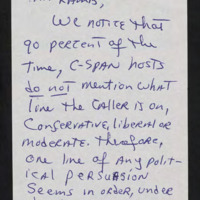 We notice that
90 percent of the
time, C-SPAN hosts
do not mention what
line the caller is on,
Conservative, liberal or
moderate. Therefore,
one line of any polit-
ical persuasion
seems in order, under